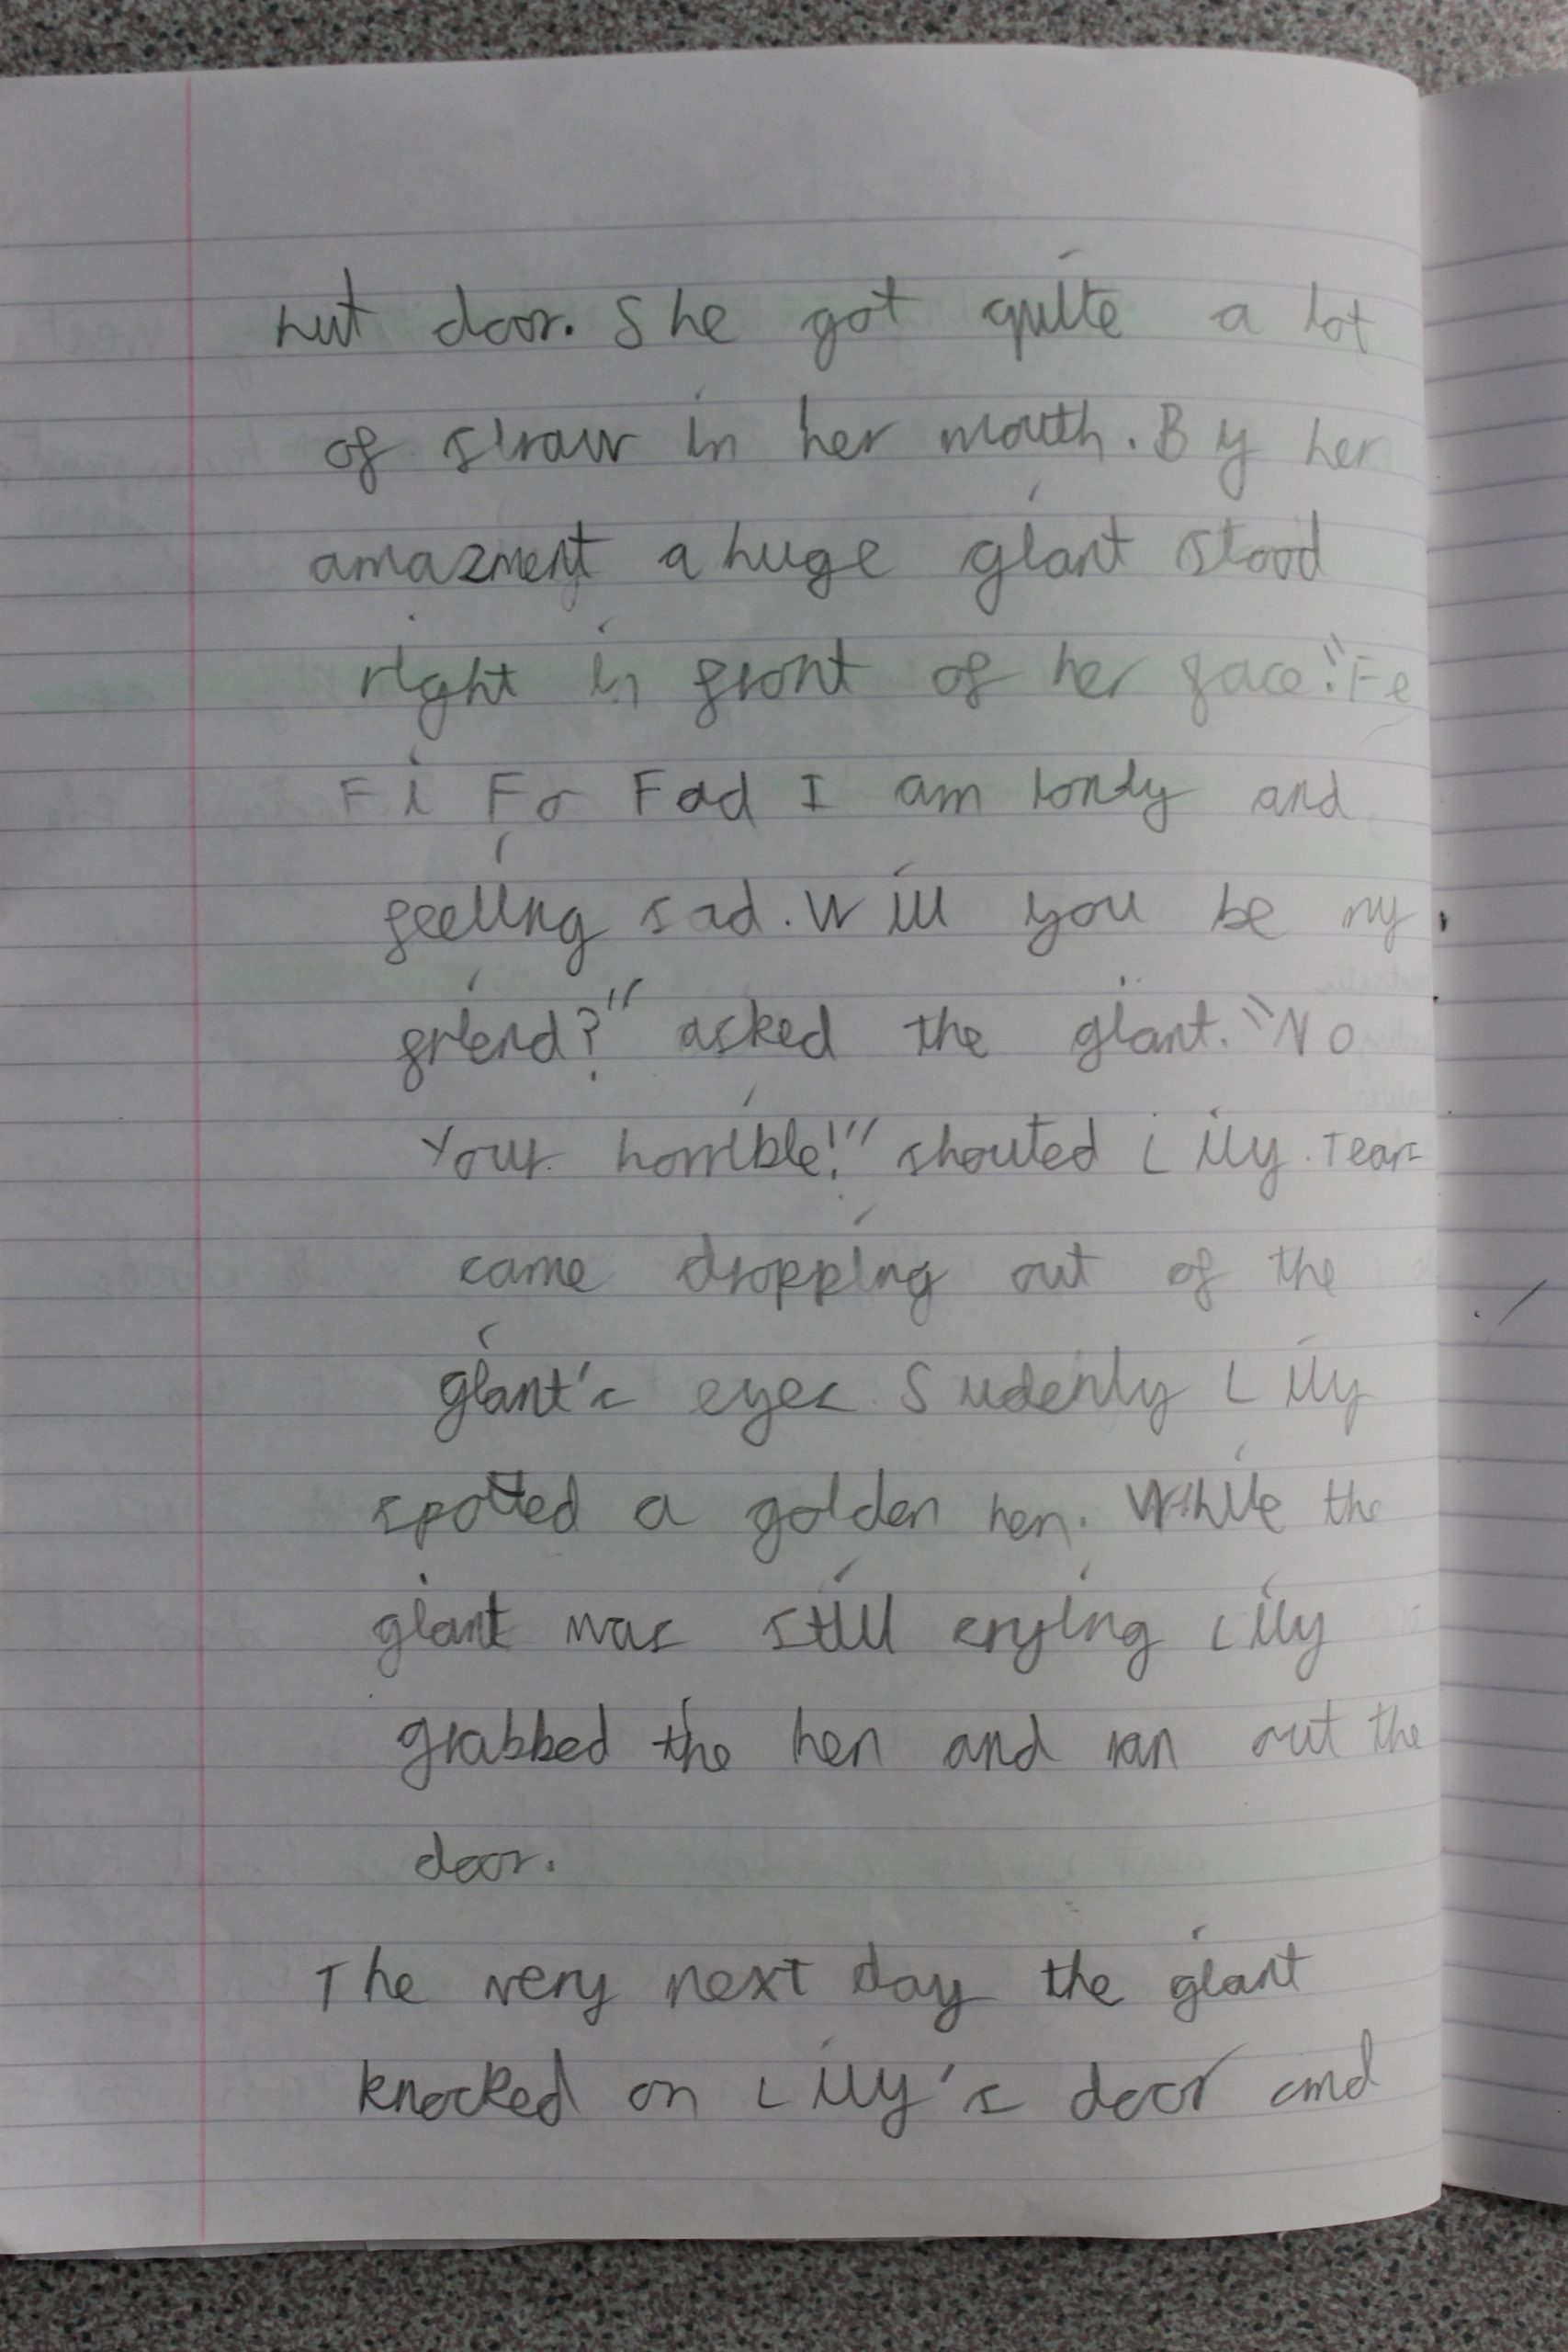 hut door. She got quite a lot
of straw in her mouth. By her
amazment a huge giant stood
right in front of her face. "Fe
Fi Fo Fad I am lonly and
feeling sad. Will you be my
friend?" asked the giant. "No
Your horrible!" shouted Lilly. Tears
came dropping out of the
giant's eyes. Sudenly Lilly
spotted a golden hen. While the
giant was still crying Lilly
grabbed the hen and ran out the
door.
The very next day the giant
knocked on Lilly's door and